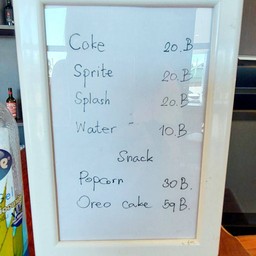 Coke 20.B
Sprite 20.B
Splash 20.B
Water 10.B
Snack
Popcorn 30B.
Oreo cake 59B.